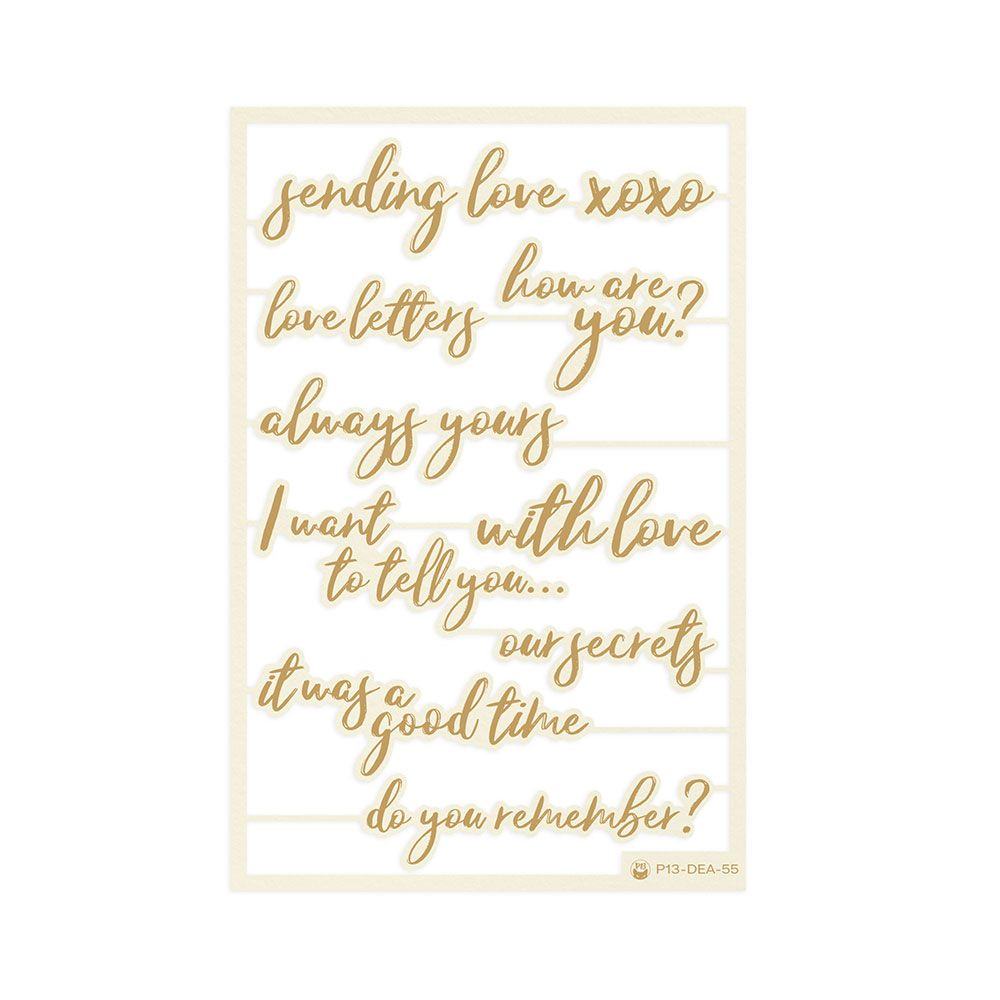 sending love xoxo
love letters
how are
you?
always yours
I want
to tell you...
with love
our secrets
it was a
good time
do you remember?
P13-DEA-55